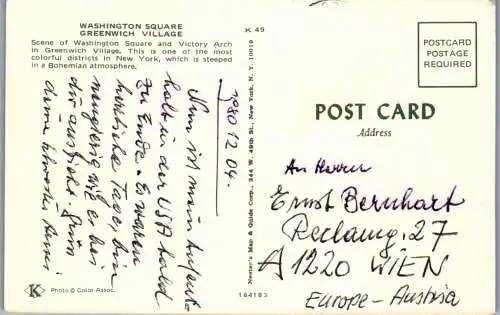 WASHINGTON SQUARE
GREENWICH VILLAGE
Scene of Washington Square and Victory Arch
in Greenwich Village. This is one of the most
colorful districts in New York, which is steeped
in a Bohemian atmosphere.
K 49
1980 12 04.
Nun ist mein Aufent-
halt in der USA bald
zu Ende. Es waren
herrliche Tage, bin
neugierig wie es bei
dir aussieht. Gruss
deine Schwester
Photo © Color Assoc.
K
Nester's Map & Guide Corp., 244 W. 49th St., New York, N.Y. 10019
164183
POSTCARD
POSTAGE
REQUIRED
POST CARD
Address
An Herrn
Ernst Bernhart
Reclamg. 27
A 1220 WIEN
Europe - Austria